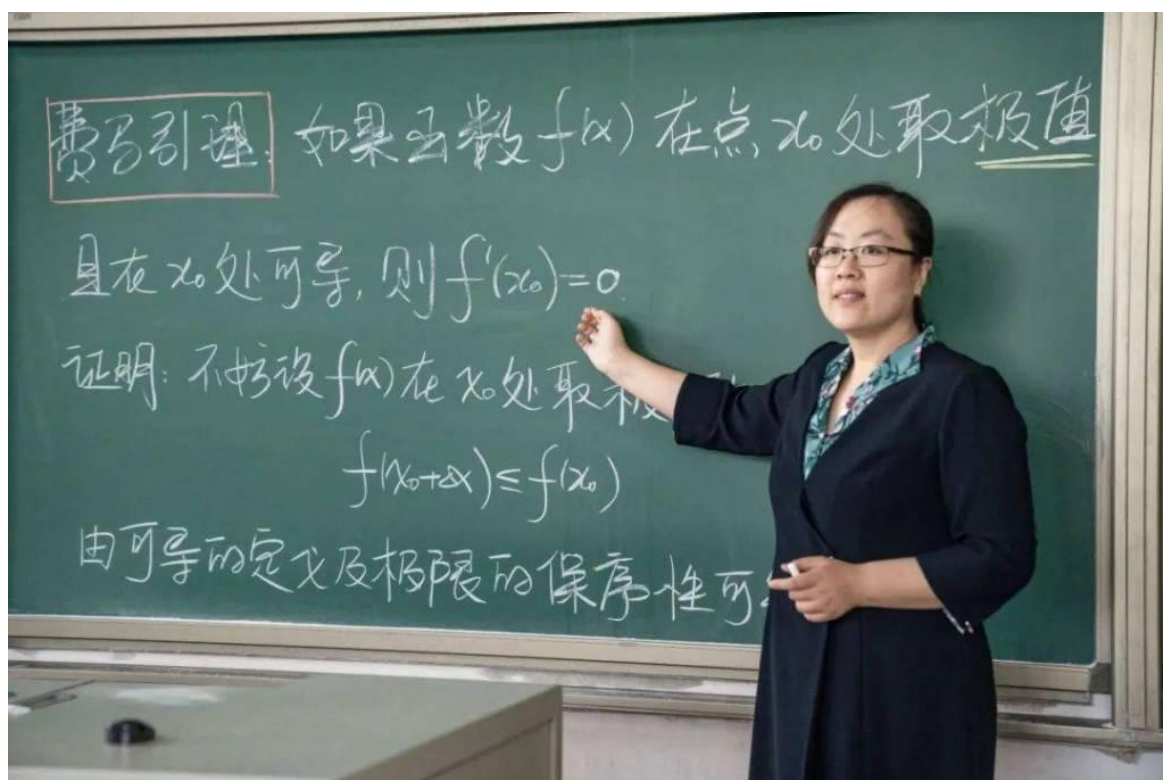 费马引理: 如果函数f(x)在点x₀处取极值
且在x₀处可导, 则f'(x₀)=0.
证明: 不妨设f(x)在x₀处取极
f(x₀+Δx)≤f(x₀)
由可导的定义及极限的保序性可